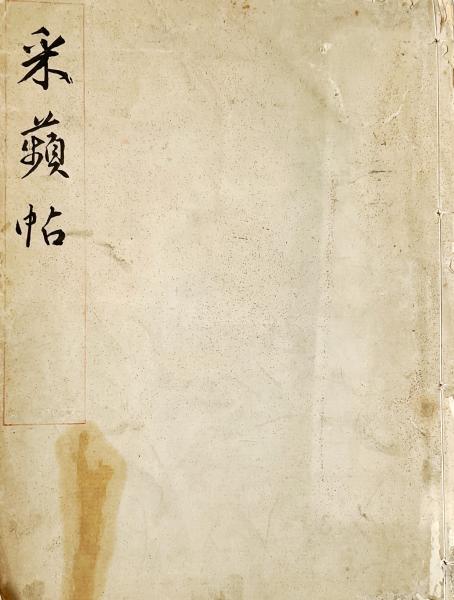 采蘋帖